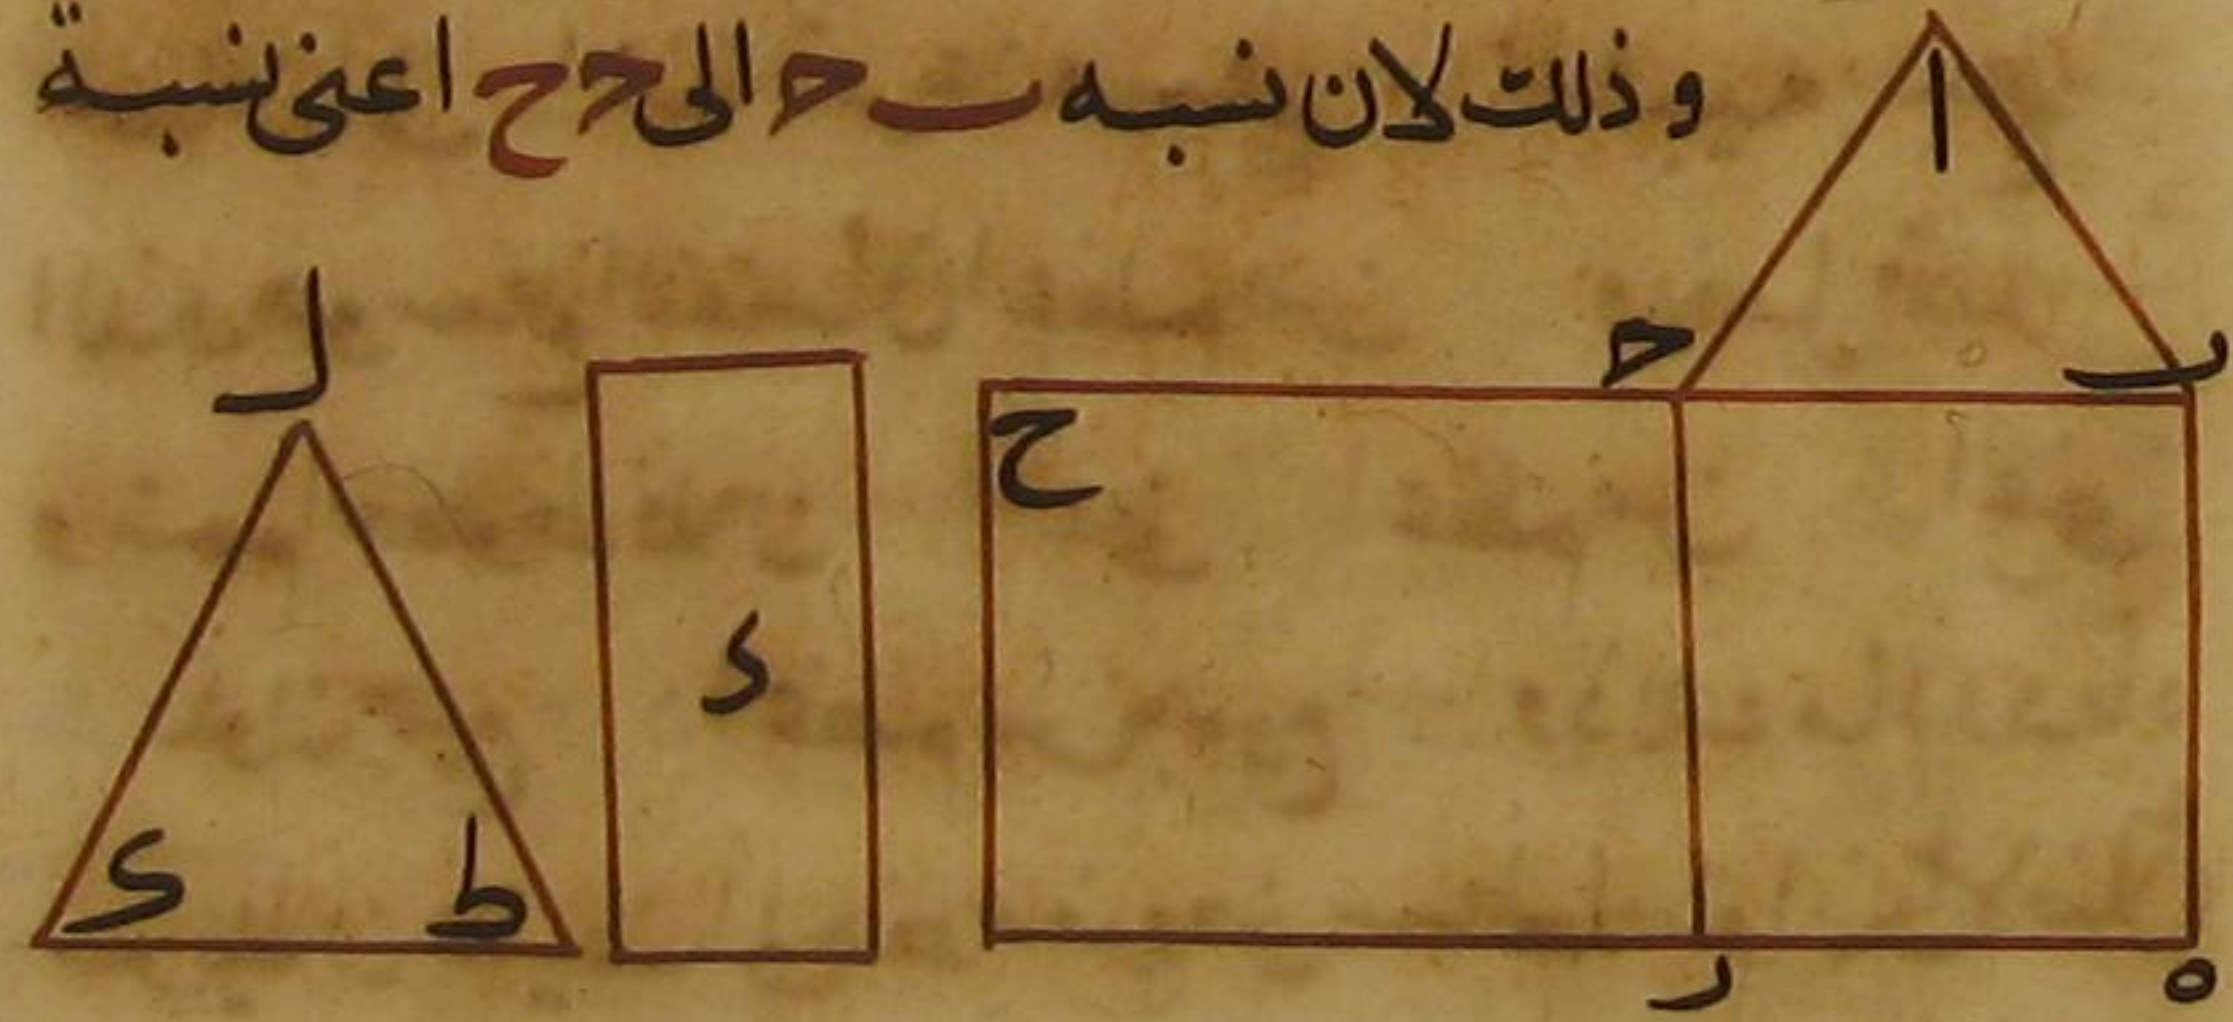 وذلك لان نسبه ب ح الى ح ح اعنى نسبة
ا
ب
ح
ح
ل
د
ط
ى
ر
ه